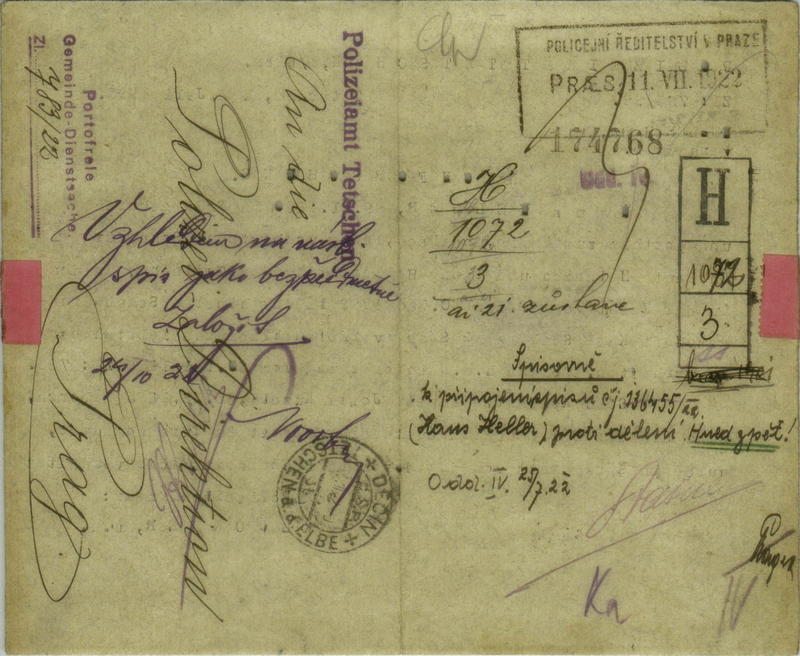 Polizeiamt Tetschen
Portofreie
Gemeinde-Dienstsache
Zl. 789/22
An die
Polizei Direktion
Prag
Vzhledem na
spis jako bezpředmětné
založiti
25/10 22
DĚČÍN
TETSCHEN a.d. ELBE
POLICEJNÍ ŘEDITELSTVÍ V PRAZE
PRÆS. 11. VII. 1922
174768
H
1072
3
H
1072
3
zůstane
Spisovně
k připojení spisů čj. 136455/22
(Hans Heller) proti dělení. Hned zpět!
Odd. IV. 25/7.22
Ka
IV